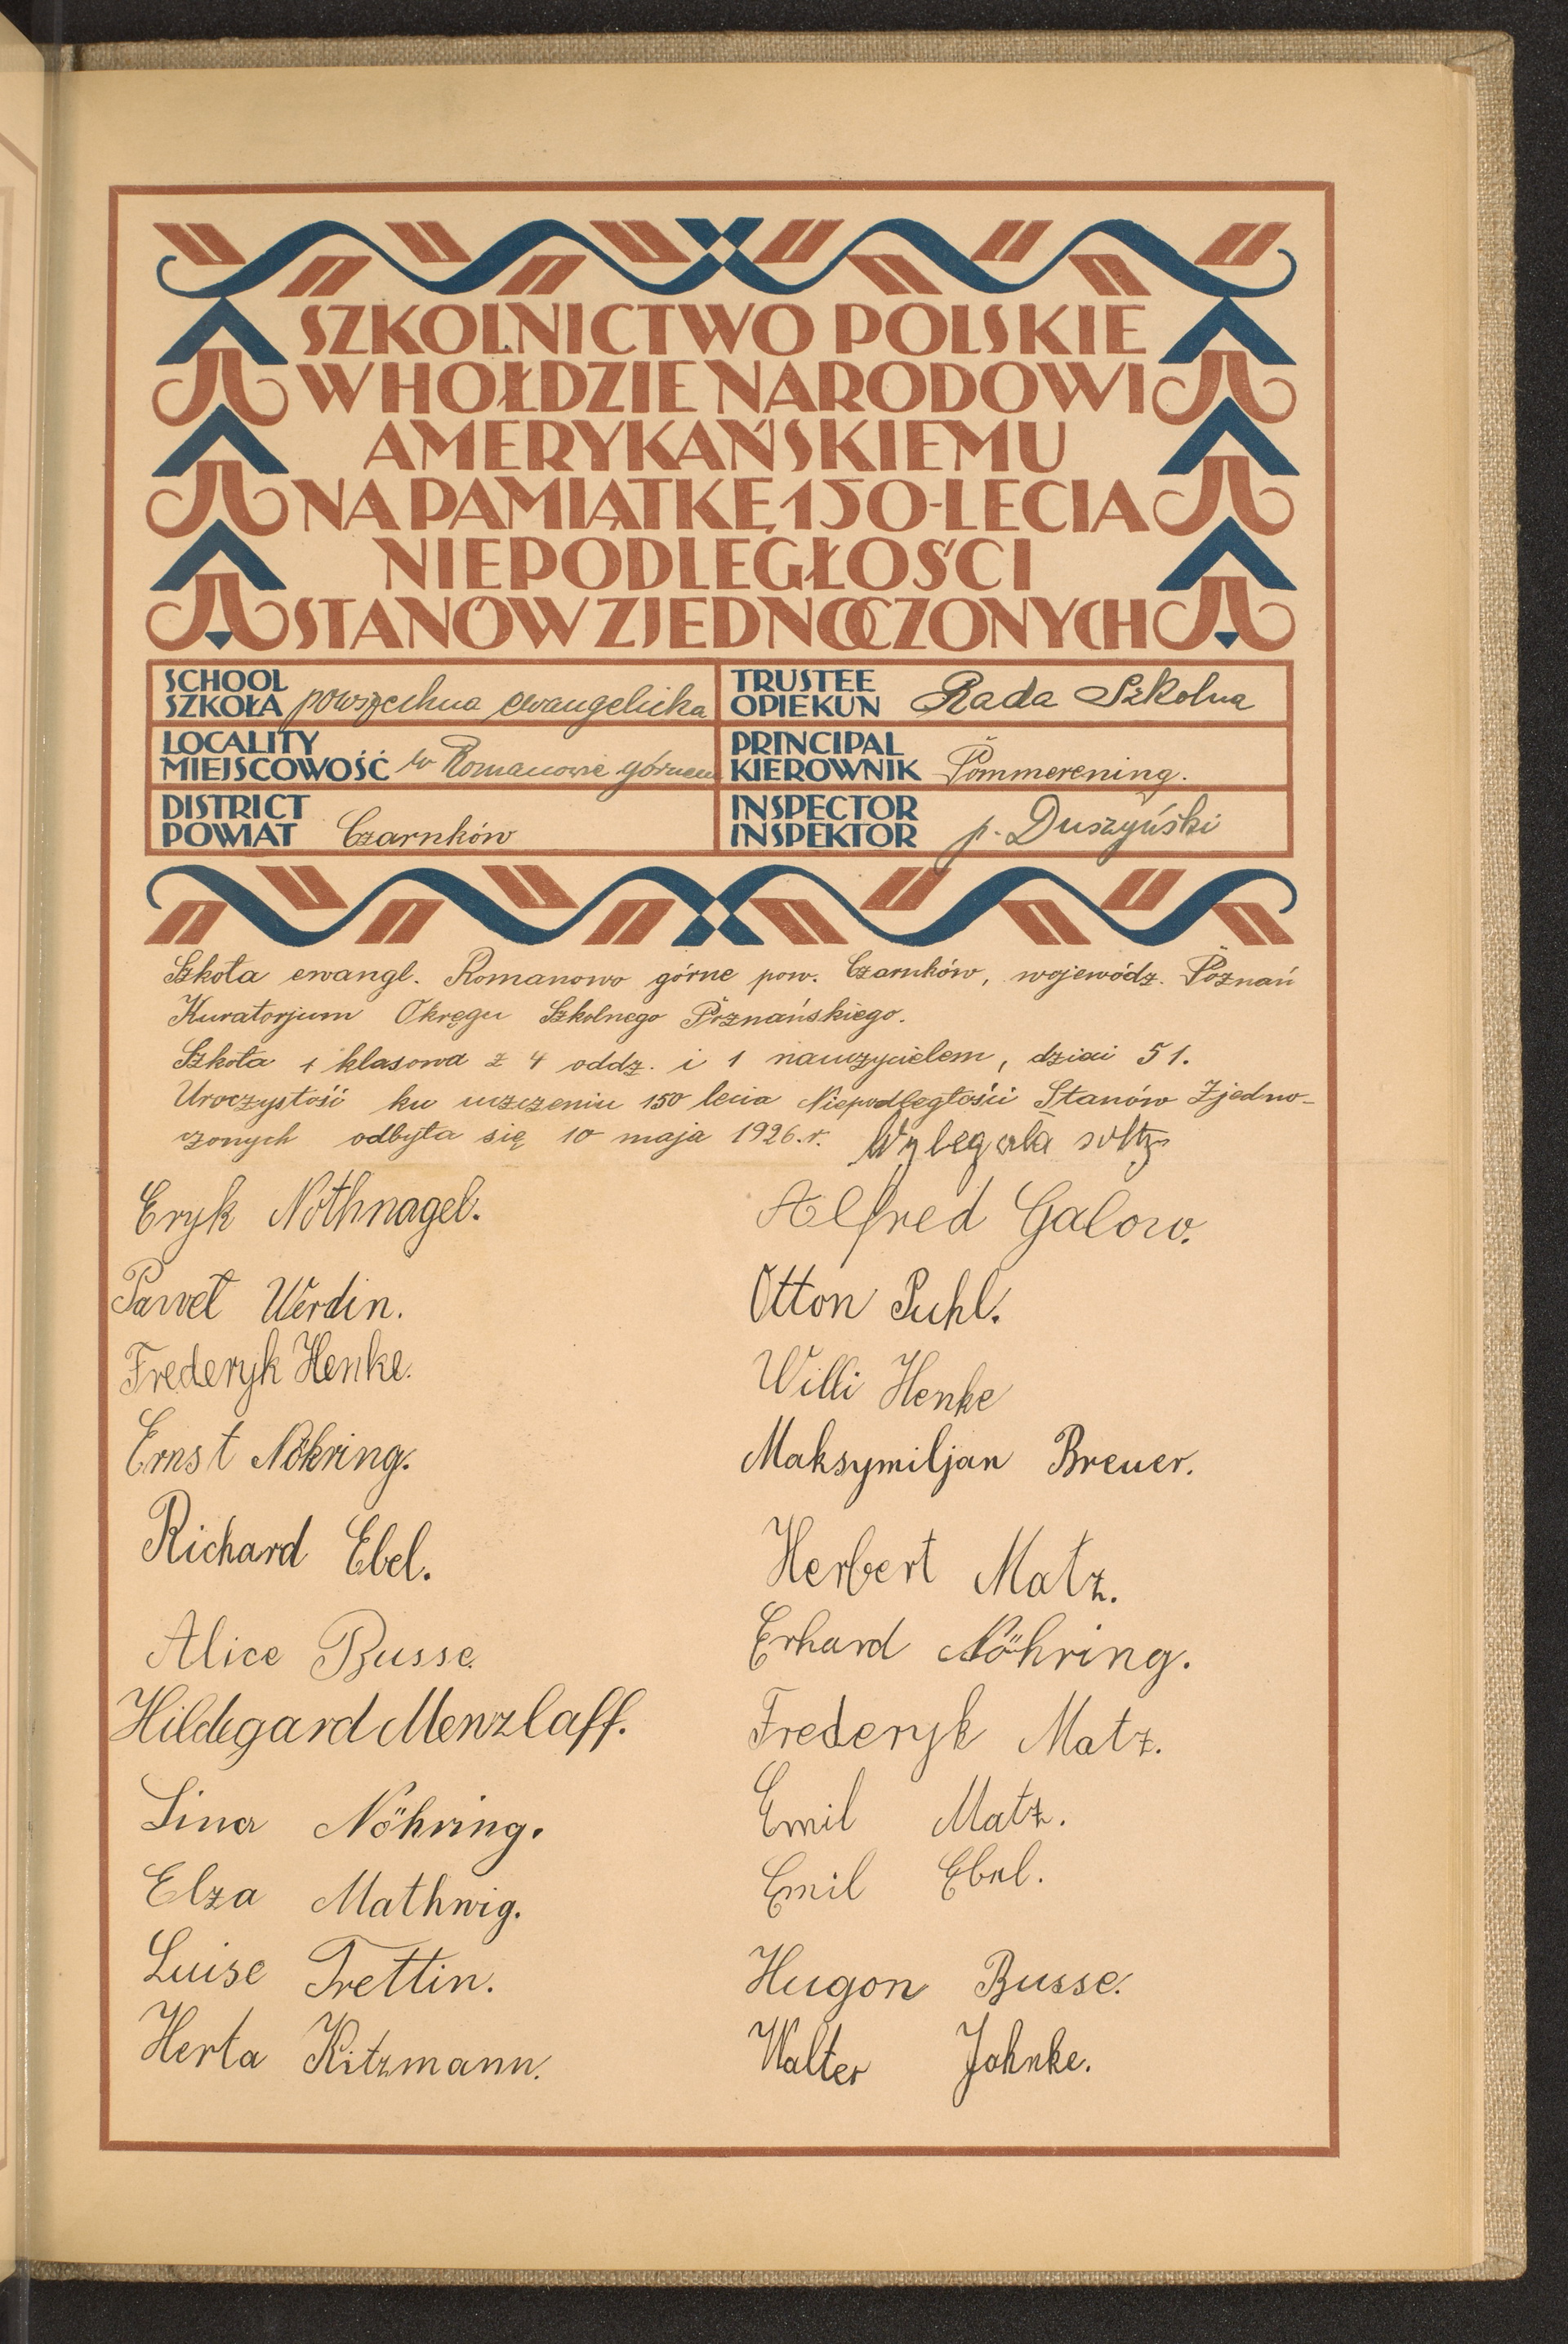 SZKOLNICTWO POLSKIE
W HOŁDZIE NARODOWI
AMERYKAŃSKIEMU
NA PAMIĄTKĘ 150-LECIA
NIEPODLEGŁOŚCI
STANÓW ZJEDNOCZONYCH
SCHOOL
SZKOŁA powszechna ewangelicka
TRUSTEE
OPIEKUN Rada Szkolna
LOCALITY
MIEJSCOWOŚĆ w Romanowie górnem
PRINCIPAL
KIEROWNIK Pommerening.
DISTRICT
POWIAT Czarnków
INSPECTOR
INSPEKTOR p. Duszyński
Szkoła ewangl. Romanowo górne pow. Czarnków, wojewódz. Poznań
Kuratorjum Okręgu Szkolnego Poznańskiego.
Szkoła 1 klasowa z 4 oddz. i 1 nauczycielem, dzieci 51.
Uroczystość ku uczczeniu 150 lecia Niepodległości Stanów Zjedno-
czonych odbyła się 10 maja 1926. r. Wylegała sołtz
Eryk Nothnagel.
Paweł Werdin.
Frederyk Henke.
Ernst Nöhring.
Richard Ebel.
Alice Busse.
Hildegard Menzlaff.
Lina Nöhring.
Elza Mathwig.
Luise Trettin.
Herta Kitzmann.
Alfred Galow.
Otton Puhl.
Willi Henke
Maksymiljan Breuer.
Herbert Matz.
Erhard Nöhring.
Frederyk Matz.
Emil Matz.
Emil Ebel.
Hugon Busse.
Walter Jahnke.